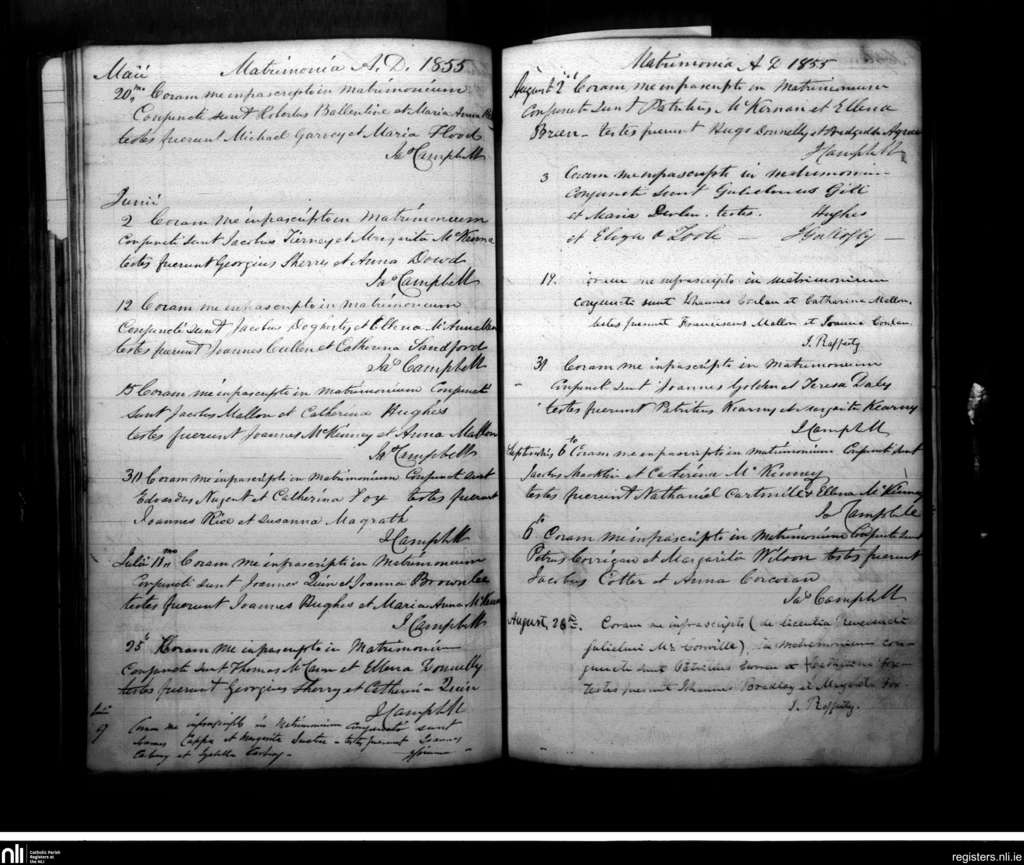 Maii Matrimonia A.D. 1855
20mo Coram me infrascripto in matrimonium
Conjuncti sunt Robertus Ballentine et Maria Anna
testes fuerunt Michael Garvey et Maria Flood
Jas Campbell
Junii
2 Coram me infrascripto in matrimonium
Conjuncti sunt Jacobus Tierney et Margarita McKenna
testes fuerunt Georgius Sherry et Anna Dowd
Jas Campbell
12 Coram me infrascripto in matrimonium
Conjuncti sunt Jacobus Dogherty et Ellena McAnnallen
testes fuerunt Joannes Cullen et Catherina Sandford
Jas Campbell
15 Coram me infrascripto in matrimonium Conjuncti
sunt Jacobus Mallon et Catherina Hughes
testes fuerunt Joannes McKinney et Anna Mallon
Jas Campbell
30 Coram me infrascripto in Matrimonium Conjuncti sunt
Edvardus Nugent et Catherina Fox testes fuerunt
Joannes Rice et Susanna Magrath
J Campbell
Julii 18mo Coram me infrascripto in Matrimonium
Conjuncti sunt Joannes Quin et Joanna Brownlee
testes fuerunt Joannes Hughes et Maria Anna McKenna
J Campbell
25 Coram me infrascripto in Matrimonium
Conjuncti sunt Thomas McCann et Ellena Donnelly
testes fuerunt Georgius Sherry et Catherina Quin
J Campbell
9 Coram me infrascripto in Matrimonium conjuncti sunt
et Margarita testes fuerunt Joannes
et
Matrimonia A D 1855
August 2nd Coram me infrascripto in Matrimonium
Conjuncti sunt Patritius McKernan et Ellena
Breen - testes fuerunt Hugo Donnelly et Bridgetta Agnew
J Campbell
3 Coram me infrascripto in matrimonium
conjuncti sunt Gulielmus Gill
et Maria Devlin. testes. Hughes
et Eliza O Toole —
19. Coram me infrascripto in matrimonium
conjuncti sunt Johannes Conlan et Catharina Mallon.
testes fuerunt Franciscus Mallon et Joanna Conlan.
J. Rafferty
30 Coram me infrascripto in Matrimonium
Conjuncti sunt Joannes Golden et Teresa Daly
testes fuerunt Patritius Kearny et Margarita Kearny
J Campbell
Septembris 6to Coram me infrascripto in matrimonium Conjuncti sunt
Jacobus Macklin et Catherina McKinney
testes fuerunt Nathaniel Cartmill et Ellena McKinney
Jas Campbell
6to Coram me infrascripto in Matrimonium Conjuncti sunt
Petrus Corrigan et Margarita Wilson testes fuerunt
Jacobus Cotter et Anna Corcoran
Jas Campbell
August, 26th. Coram me infrascripto (de licentia Reverendi
Gulielmi Mc Conville) in matrimonium con
juncti sunt Patricius et
Testes fuerunt Johannes Bradley et Fox.
J. Rafferty.
nli
Catholic Parish
Registers at
the NLI
registers.nli.ie